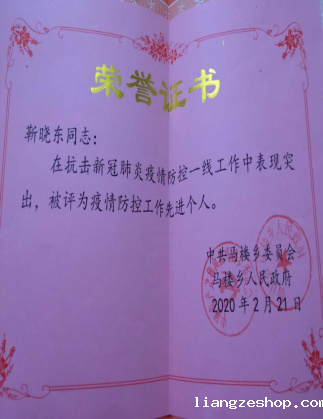 荣誉证书
靳晓东同志:
在抗击新冠肺炎疫情防控一线工作中表现突
出，被评为疫情防控工作先进个人。
中共马楼乡委员会
马楼乡人民政府
2020年2月21日
liangzeshop.com